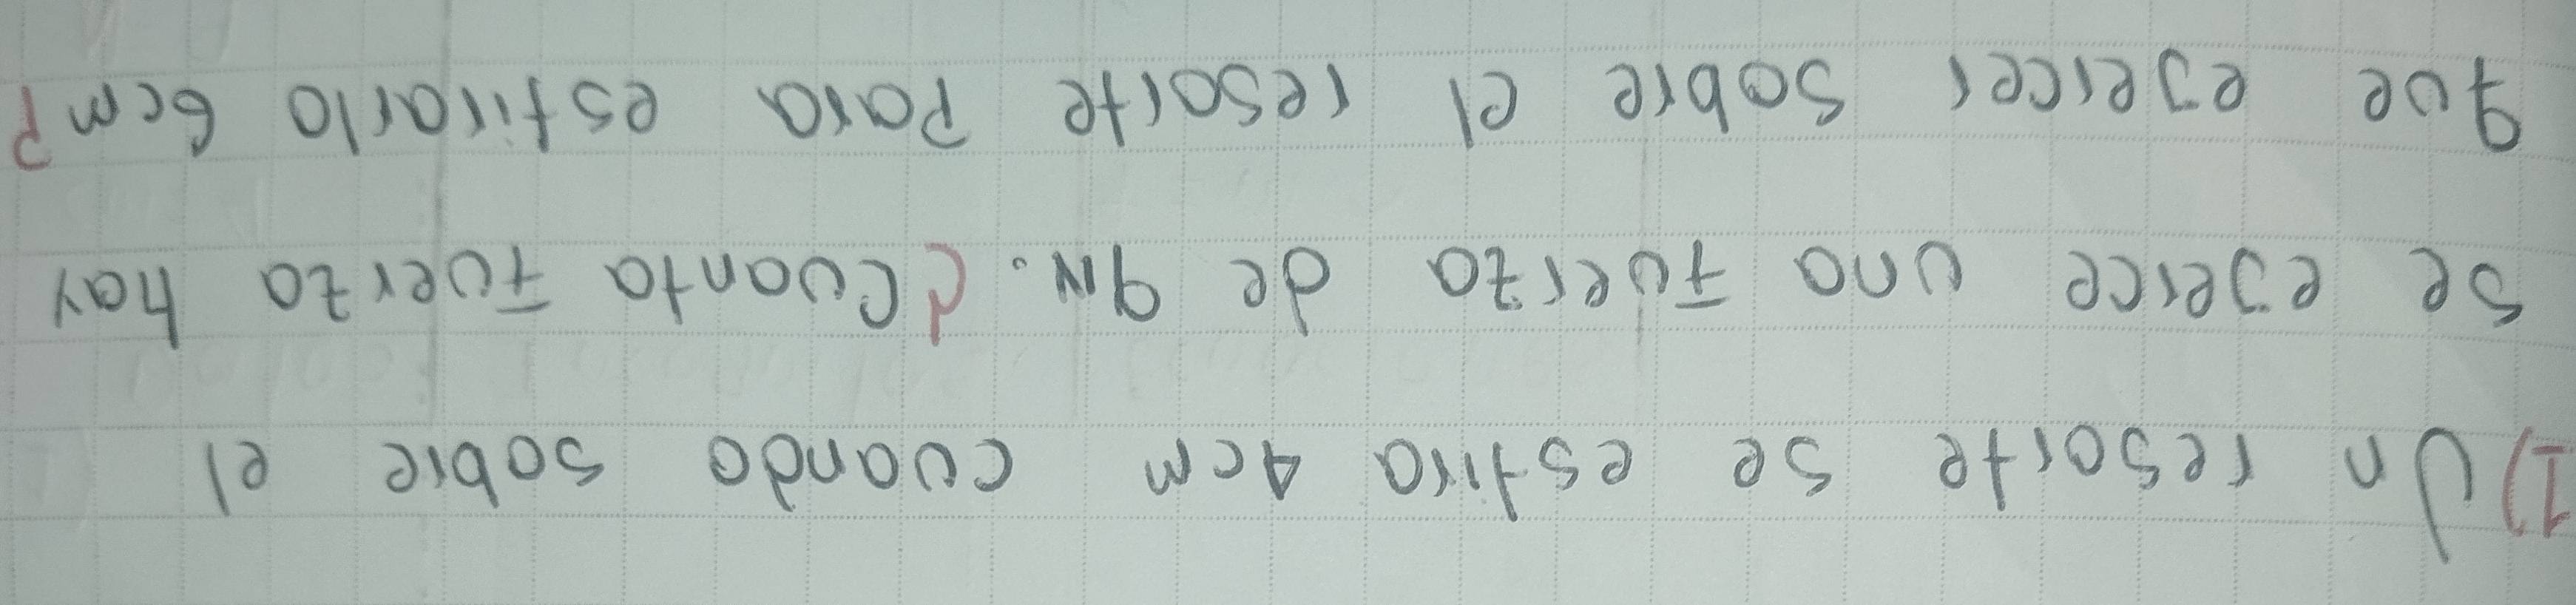 1) Un resorte se estira 4cm cuando sobre el
se ejerce una fuerza de 9N. ¿Cuanta fuerza hay
que ejercer sobre el resorte para estirarlo 6cm?